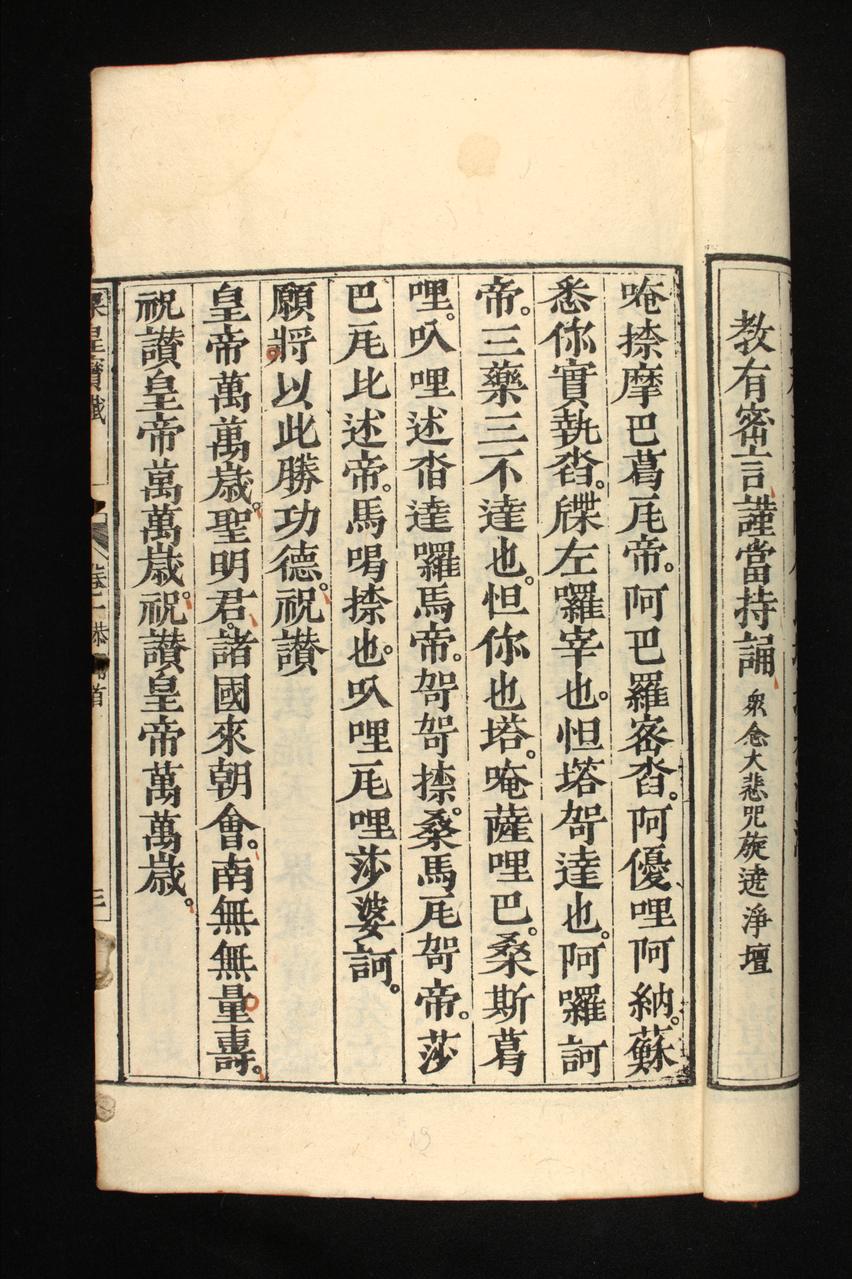 教有密言謹當持誦 衆念大悲咒旋遶淨壇
唵捺摩巴葛瓦帝。阿巴羅密沓。阿優哩阿納。蘇
悉你實執沓。牒左囉宰也。怛塔哿達也。阿囉訶
帝。三藥三不達也。怛你也塔。唵薩哩巴。桑斯葛
哩。㕥哩述沓達囉馬帝。哿哿捺。桑馬瓦哿帝。莎
巴瓦比述帝。馬喝捺也。㕥哩瓦哩莎婆訶。
願將以此勝功德。祝讚
皇帝萬萬歲。聖明君。諸國來朝會。南無無量壽。
祝讚皇帝萬萬歲。祝讚皇帝萬萬歲。
皇寶懺 卷一 三
19